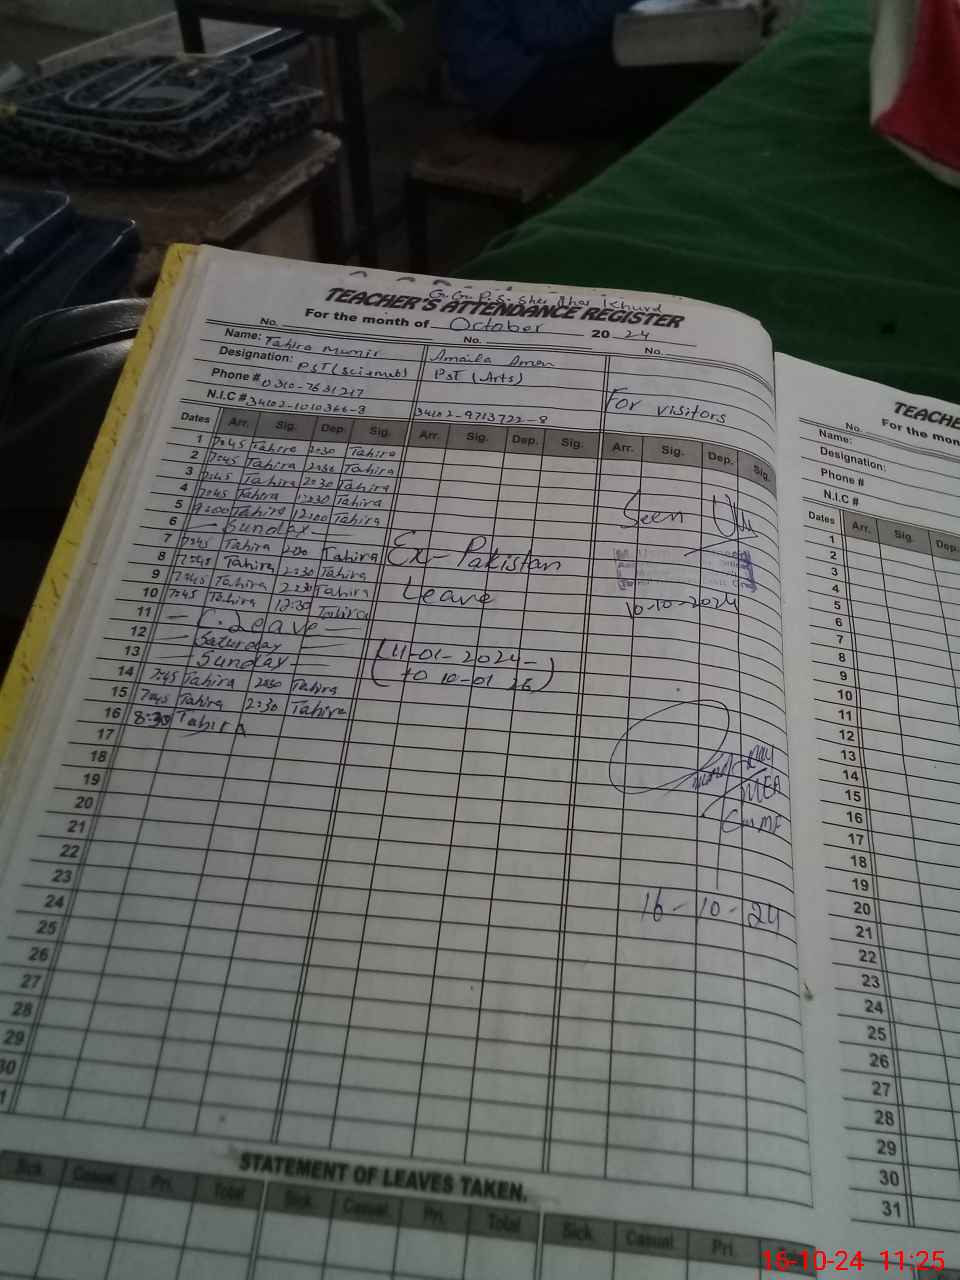 G.G.P.S. Sher Ghar Khurd
TEACHER'S ATTENDANCE REGISTER
For the month of October 2024
No. No. No.
Name: Tahira Munir Amaila Aman
Designation: PST (Sci-math) PST (Arts)
Phone # 0310-7631217 For visitors
N.I.C # 34102-1010366-8 34102-9713722-8
Dates Arr. Sig. Dep. Sig. Arr. Sig. Dep. Sig. Arr. Sig. Dep. Sig.
1 7:45 Tahira 2:30 Tahira
2 7:45 Tahira 2:30 Tahira
3 7:45 Tahira 2:30 Tahira
4 7:45 Tahira 12:30 Tahira
5 9:00 Tahira 12:00 Tahira Seen
6 — Sunday —
7 7:45 Tahira 2:30 Tahira Ex-Pakistan
8 7:45 Tahira 2:30 Tahira
9 7:45 Tahira 2:30 Tahira Leave
10 7:45 Tahira 12:30 Tahira 10-10-2024
11 — C. Leave —
12 — Saturday —
13 — Sunday — (11-01-2024-
14 7:45 Tahira 2:30 Tahira to 10-01 26)
15 7:45 Tahira 2:30 Tahira
16 8:30 Tahira
17
18
MEA
19
20
21
22
23
24 16-10-24
25
26
27
28
29
30
1
STATEMENT OF LEAVES TAKEN.
Sick. Casual. Pri. Total Sick. Casual. Pri. Total Sick. Casual. Pri.
TEACHE
For the mon
No.
Name:
Designation:
Phone #
N.I.C #
Dates Arr. Sig. Dep.
1
2
3
4
5
6
7
8
9
10
11
12
13
14
15
16
17
18
19
20
21
22
23
24
25
26
27
28
29
30
31
16-10-24 11:25